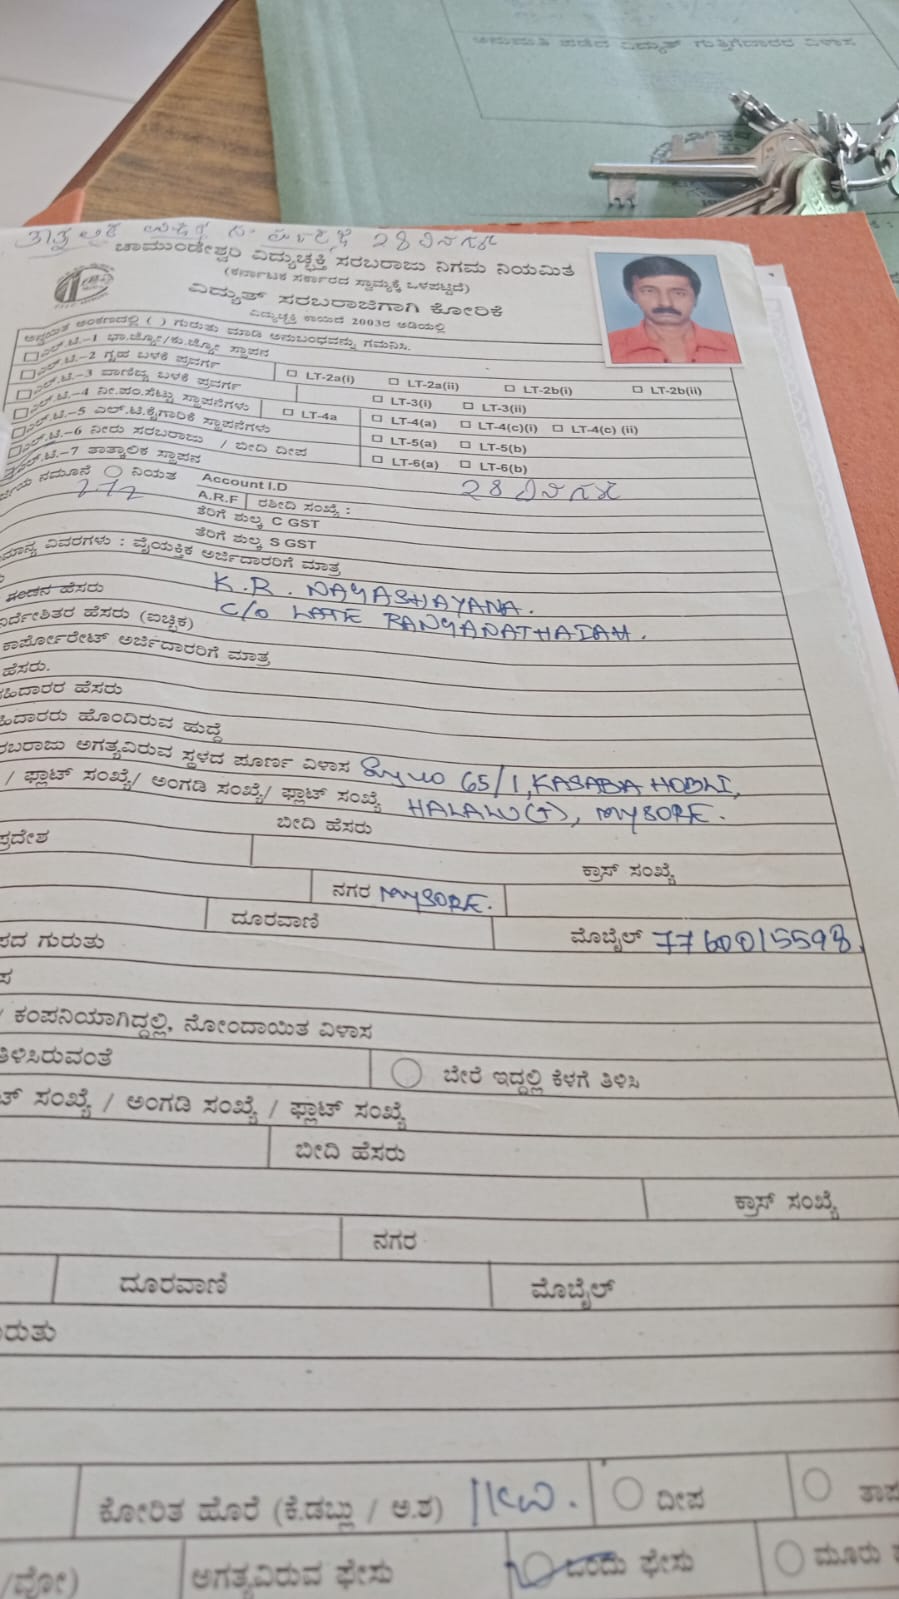 ಅನುಮತಿ ಪಡೆದ ವಿದ್ಯುತ್ ಗುತ್ತಿಗೆದಾರರ ವಿಳಾಸ
28 ದಿನಗಳು
ಚಾಮುಂಡೇಶ್ವರಿ ವಿದ್ಯುಚ್ಛಕ್ತಿ ಸರಬರಾಜು ನಿಗಮ ನಿಯಮಿತ
(ಕರ್ನಾಟಕ ಸರ್ಕಾರದ ಸ್ವಾಮ್ಯಕ್ಕೆ ಒಳಪಟ್ಟಿದೆ)
ವಿದ್ಯುತ್ ಸರಬರಾಜಿಗಾಗಿ ಕೋರಿಕೆ
ವಿದ್ಯುಚ್ಛಕ್ತಿ ಕಾಯಿದೆ 2003ರ ಅಡಿಯಲ್ಲಿ
ಅಂಕಣದಲ್ಲಿ ( ) ಗುರುತು ಮಾಡಿ ಅನುಬಂಧವನ್ನು ಗಮನಿಸಿ.
ಎಲ್.ಟಿ.-1 ಭಾ.ಜ್ಯೋ/ಕು.ಜ್ಯೋ ಸ್ಥಾಪನ
ಎಲ್.ಟಿ.-2 ಗೃಹ ಬಳಕೆ ಪ್ರವರ್ಗ LT-2a(i) LT-2a(ii) LT-2b(i) LT-2b(ii)
ಎಲ್.ಟಿ.-3 ವಾಣಿಜ್ಯ ಬಳಕೆ ಪ್ರವರ್ಗ LT-3(i) LT-3(ii)
ಎಲ್.ಟಿ.-4 ನೀ.ಪಂ.ಸೆಟ್ಟು ಸ್ಥಾಪನೆಗಳು LT-4a LT-4(a) LT-4(c)(i) LT-4(c) (ii)
ಎಲ್.ಟಿ.-5 ಎಲ್.ಟಿ.ಕೈಗಾರಿಕೆ ಸ್ಥಾಪನೆಗಳು LT-5(a) LT-5(b)
ಎಲ್.ಟಿ.-6 ನೀರು ಸರಬರಾಜು / ಬೀದಿ ದೀಪ LT-6(a) LT-6(b)
ಎಲ್.ಟಿ.-7 ತಾತ್ಕಾಲಿಕ ಸ್ಥಾಪನ
ನಮೂನೆ ನಿಯತ Account I.D 28 ದಿನಗಳು
A.R.F ರಶೀದಿ ಸಂಖ್ಯೆ :
ತೆರಿಗೆ ಶುಲ್ಕ C GST
ತೆರಿಗೆ ಶುಲ್ಕ S GST
ವಿವರಗಳು : ವೈಯಕ್ತಿಕ ಅರ್ಜಿದಾರರಿಗೆ ಮಾತ್ರ
ಹೆಸರು K.R. NAYASHAYANA.
ಹೆಸರು (ಐಚ್ಛಿಕ) C/O LATE RANGANATHAIAH.
ಕಾರ್ಪೋರೇಟ್ ಅರ್ಜಿದಾರರಿಗೆ ಮಾತ್ರ
ಹೆಸರು.
ಹೆಸರು
ಹೊಂದಿರುವ ಹುದ್ದೆ
ಅಗತ್ಯವಿರುವ ಸ್ಥಳದ ಪೂರ್ಣ ವಿಳಾಸ 65/1, KASABA HOBLI,
/ ಫ್ಲಾಟ್ ಸಂಖ್ಯೆ/ ಅಂಗಡಿ ಸಂಖ್ಯೆ/ ಫ್ಲಾಟ್ ಸಂಖ್ಯೆ HALALU(T), MYSORE.
ಬೀದಿ ಹೆಸರು
ಪ್ರದೇಶ ಕ್ರಾಸ್ ಸಂಖ್ಯೆ
ನಗರ MYSORE.
ದೂರವಾಣಿ ಮೊಬೈಲ್ 7760015598
ಗುರುತು
ಕಂಪನಿಯಾಗಿದ್ದಲ್ಲಿ, ನೋಂದಾಯಿತ ವಿಳಾಸ
ತಿಳಿಸಿರುವಂತೆ ಬೇರೆ ಇದ್ದಲ್ಲಿ ಕೆಳಗೆ ತಿಳಿಸಿ
ಸಂಖ್ಯೆ / ಅಂಗಡಿ ಸಂಖ್ಯೆ / ಫ್ಲಾಟ್ ಸಂಖ್ಯೆ
ಬೀದಿ ಹೆಸರು
ಕ್ರಾಸ್ ಸಂಖ್ಯೆ
ನಗರ
ದೂರವಾಣಿ ಮೊಬೈಲ್
ಕೋರಿತ ಹೊರೆ (ಕೆ.ಡಬ್ಲು / ಅ.ಶ) ದೀಪ
ಅಗತ್ಯವಿರುವ ಫೇಸು ಒಂದು ಫೇಸು ಮೂರು